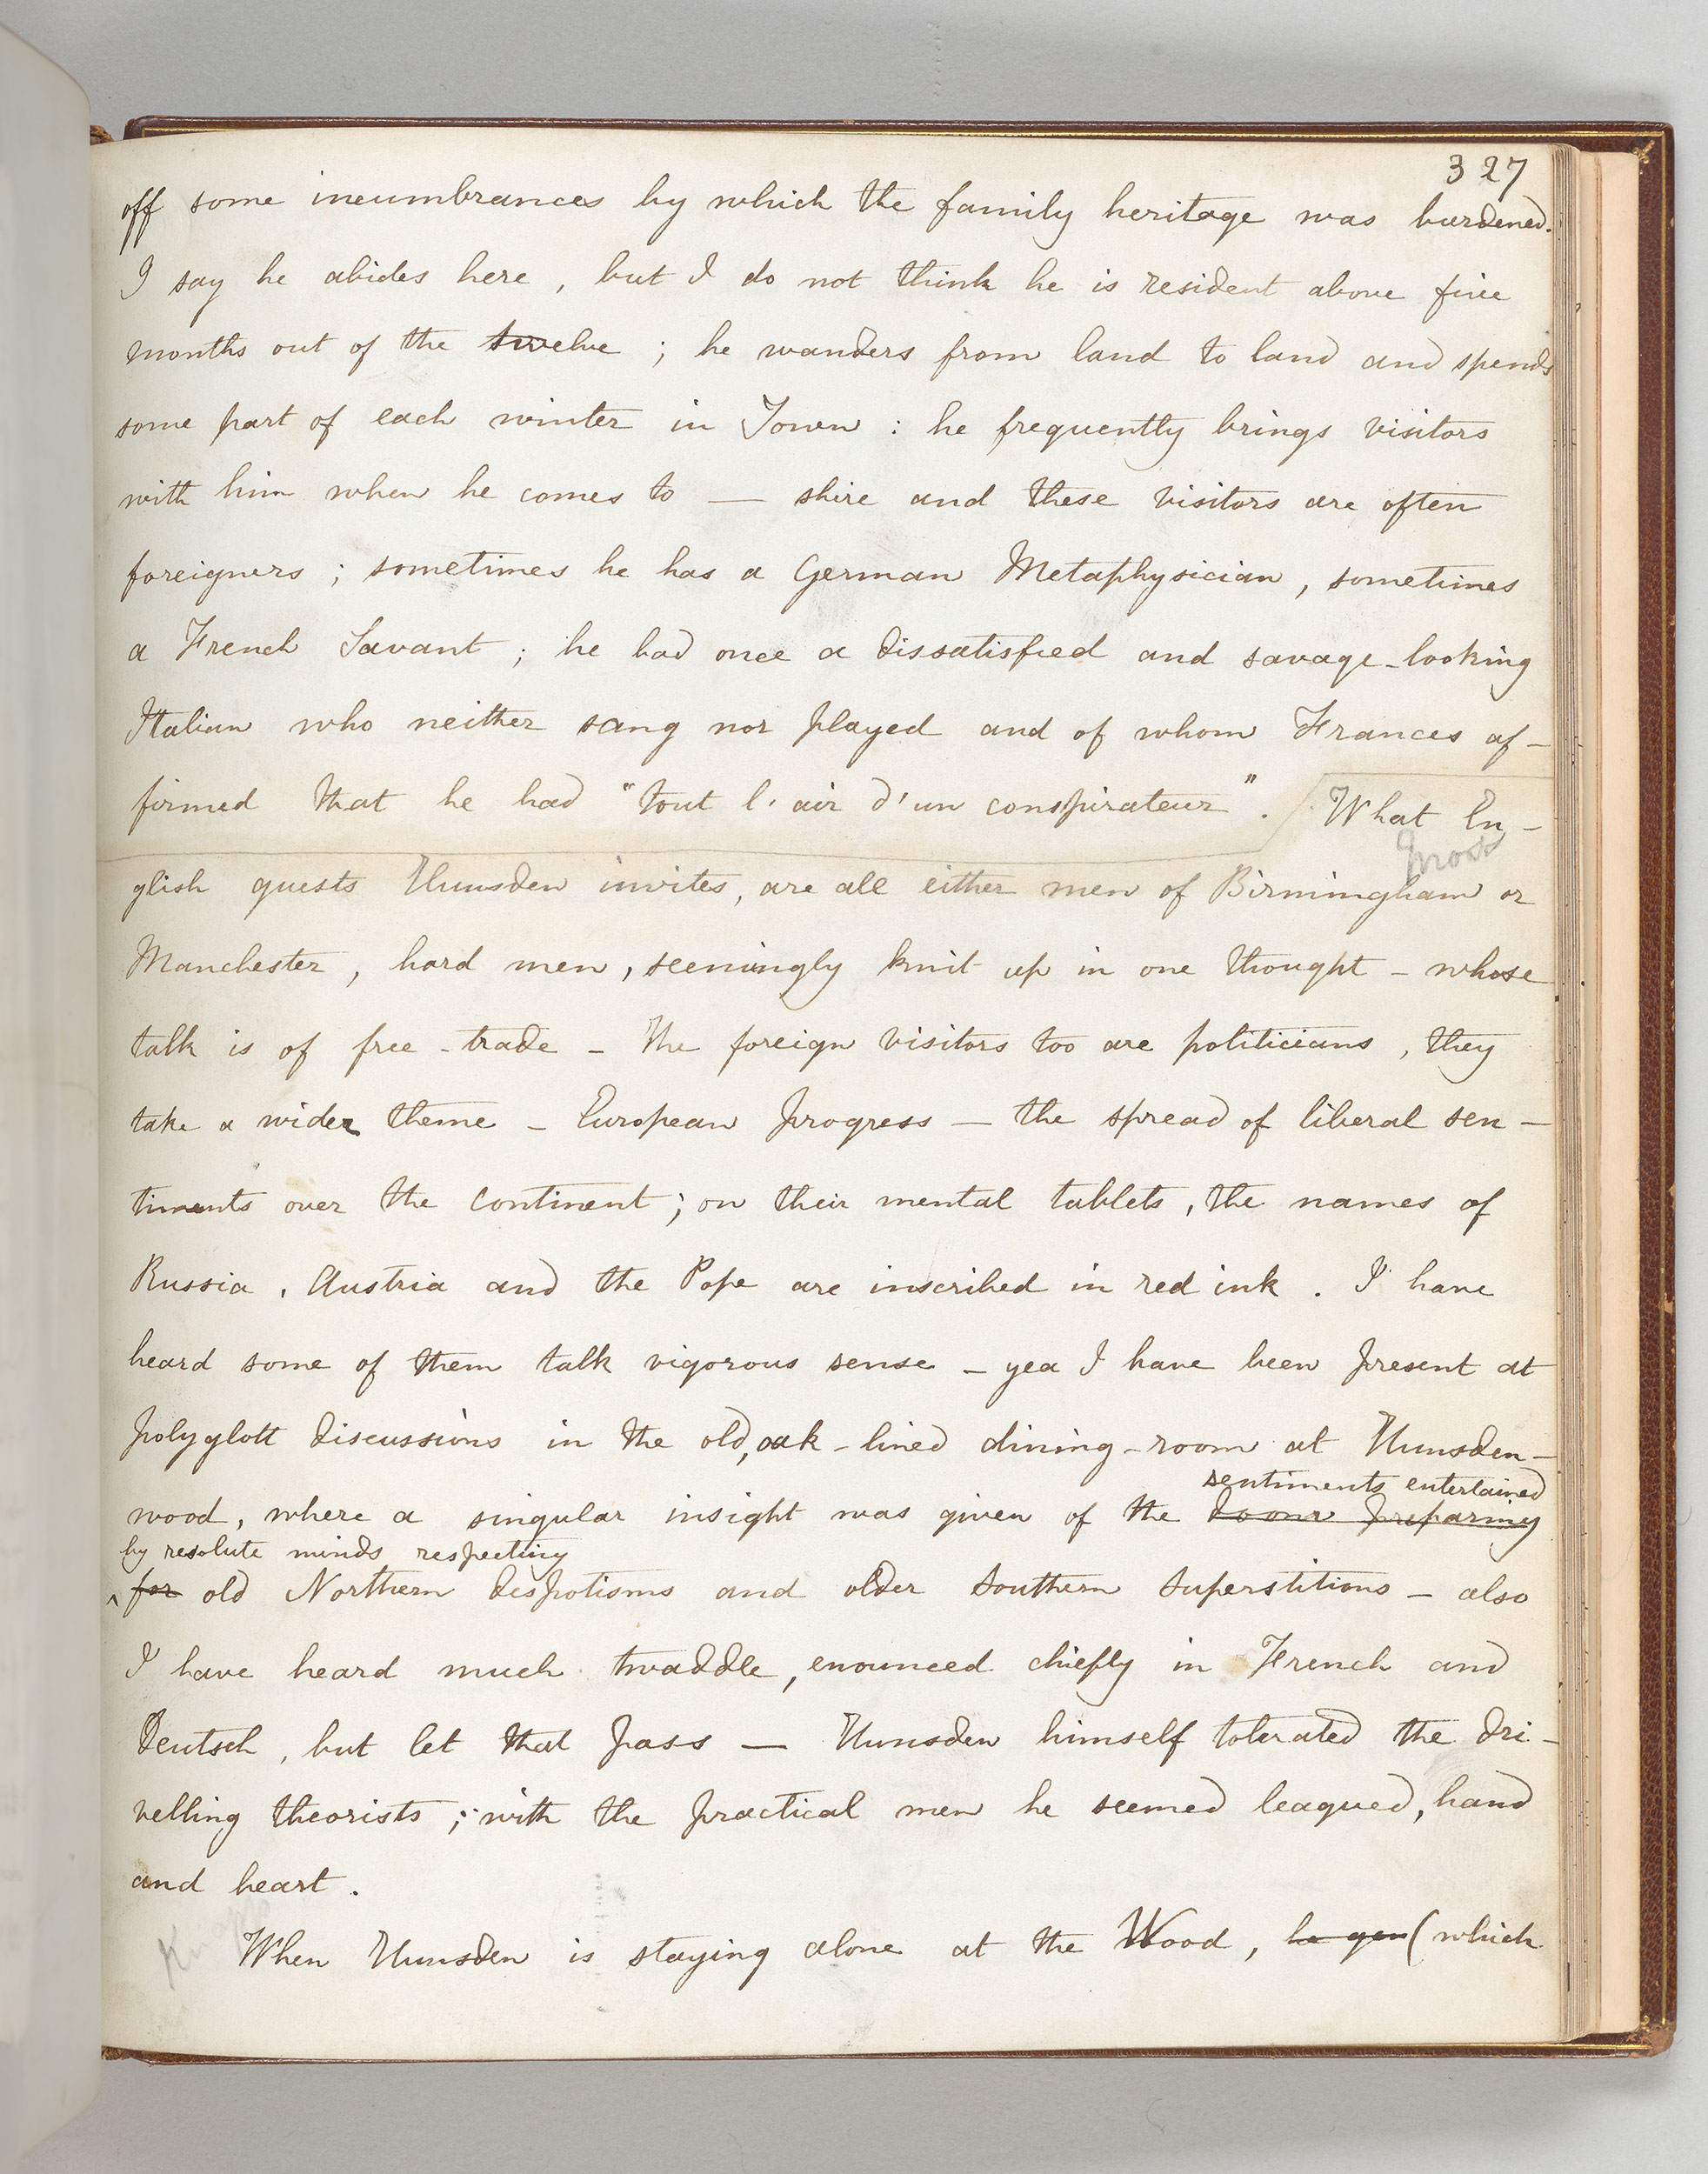 327
off some incumbrances by which the family heritage was burdened.
I say he abides here, but I do not think he is resident above five
months out of the twelve; he wanders from land to land and spends
some part of each winter in Town: he frequently brings visitors
with him when he comes to — shire and these visitors are often
foreigners; sometimes he has a German Metaphysician, sometimes
a French Savant; he had once a dissatisfied and savage-looking
Italian who neither sang nor played and of whom Frances af-
firmed that he had "tout l'air d'un conspirateur". What En-
glish guests Hunsden invites, are all either men of Birmingham or
Manchester, hard men, seemingly knit up in one thought - whose
talk is of free-trade - The foreign visitors too are politicians, they
take a wider theme - European progress - the spread of liberal sen-
timents over the continent; on their mental tablets, the names of
Russia, Austria and the Pope are inscribed in red ink. I have
heard some of them talk vigorous sense - yea I have been present at
polyglott discussions in the old, oak-lined dining-room at Hunsden-
sentiments entertained
wood, where a singular insight was given of the doom preparing
by resolute minds respecting
for old Northern despotisms and older Southern Superstitions - also
I have heard much twaddle, enounced chiefly in French and
Deutsch, but let that pass — Hunsden himself tolerated the dri-
velling theorists; with the practical men he seemed leagued, hand
and heart.
When Hunsden is staying alone at the Wood, he gen (which